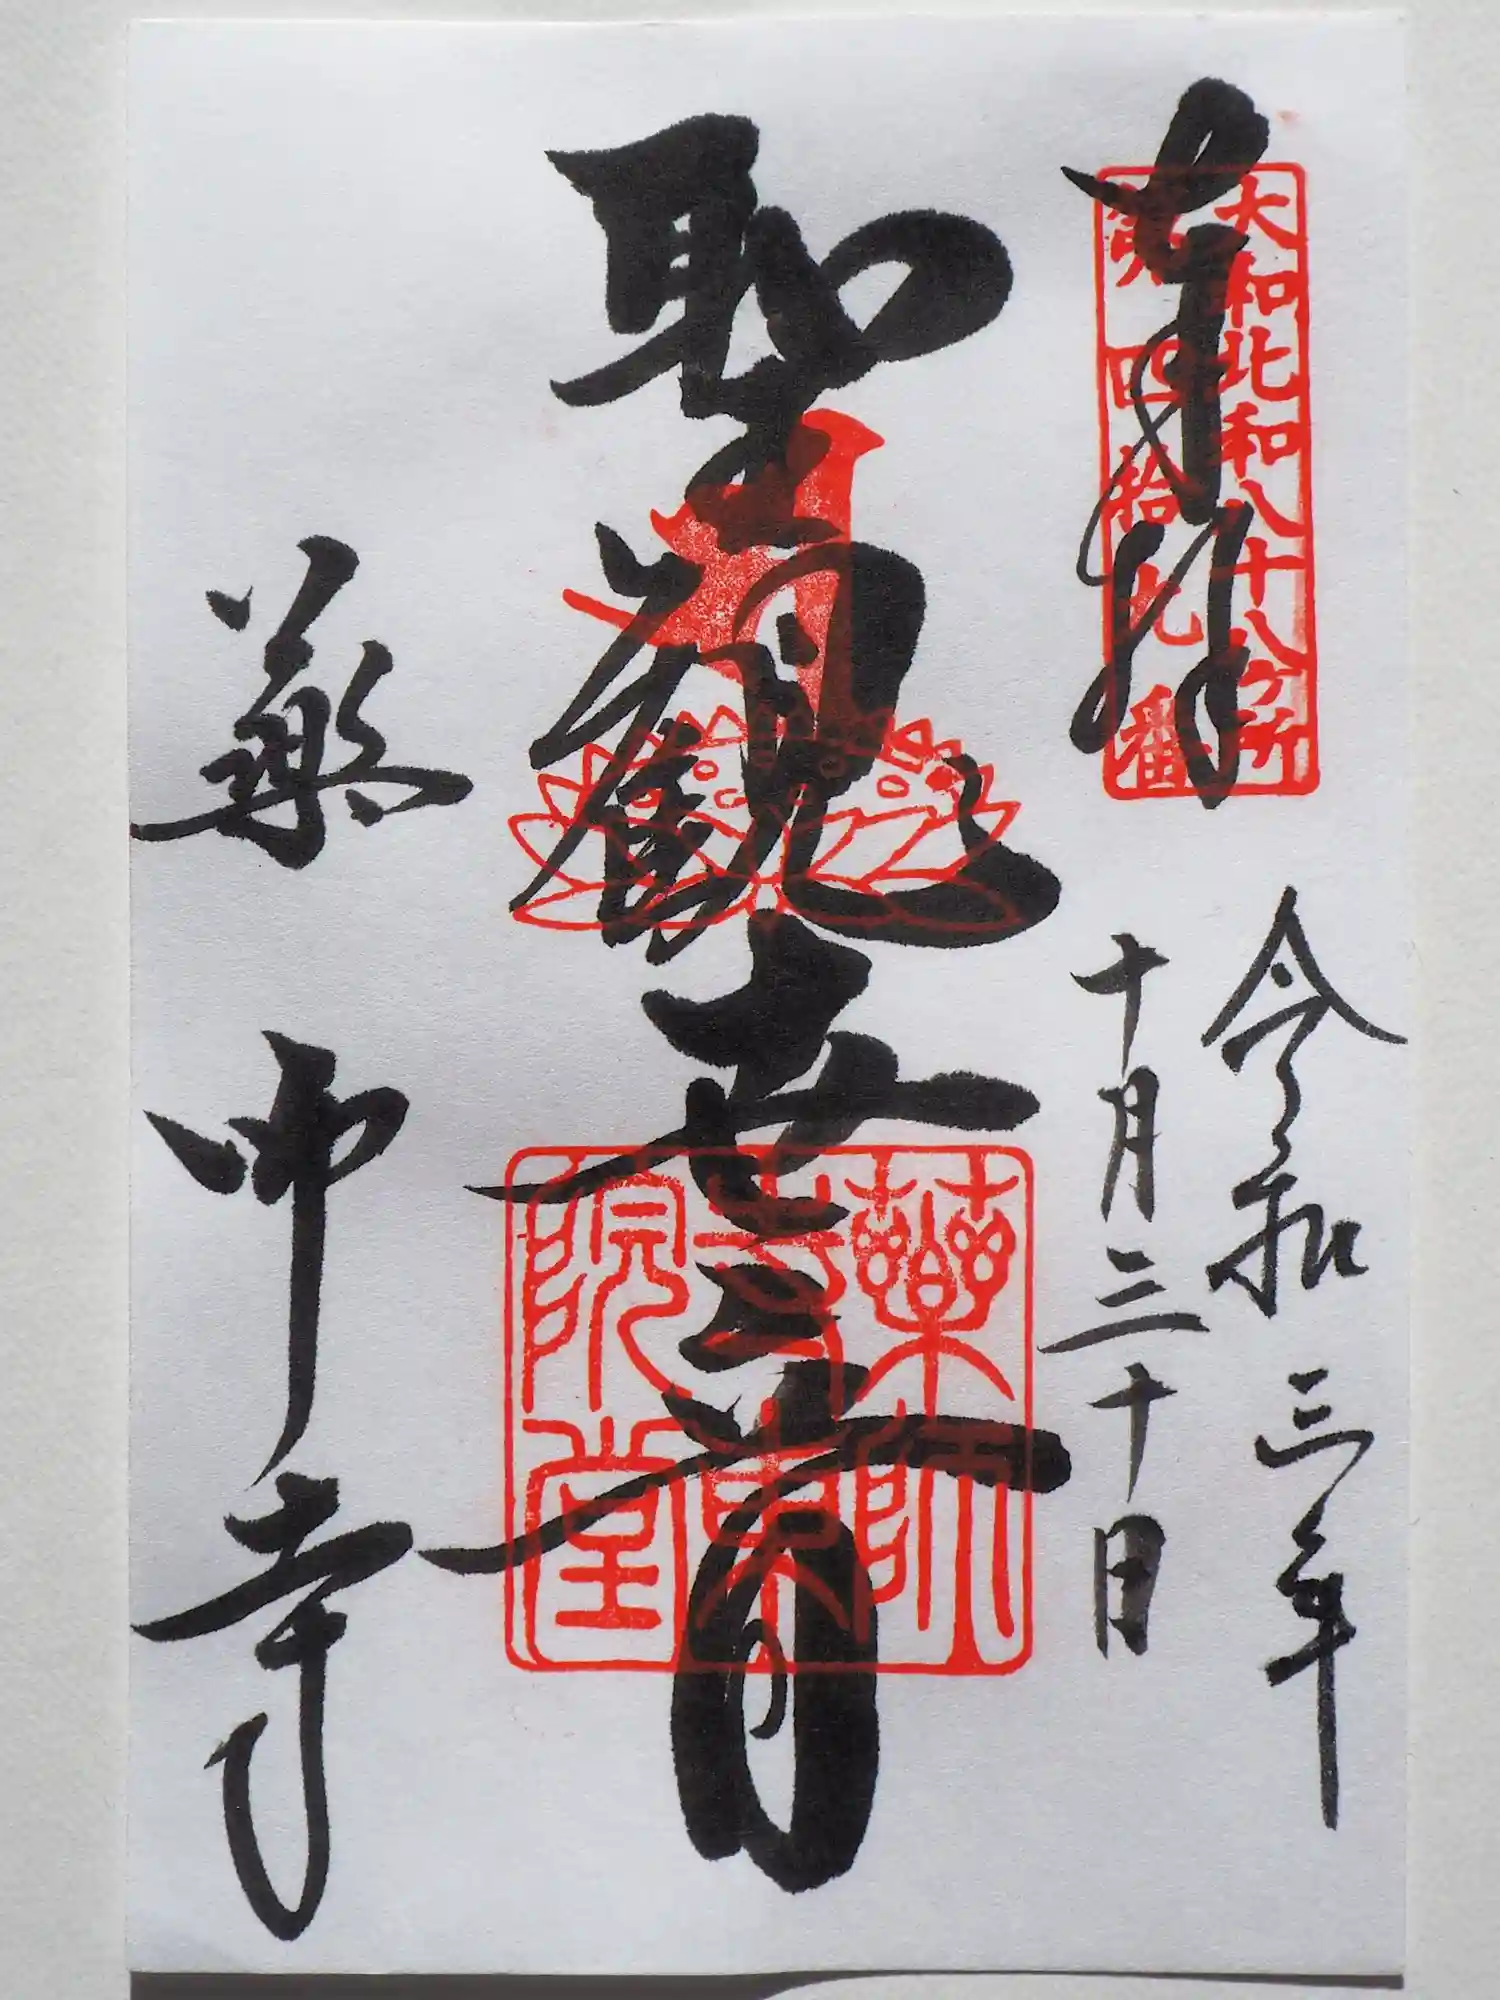 奉拝
大和北和八十八ヶ所
第四拾九番
令和三年
十月三十日
聖観世音
藥師寺東院堂
藥師寺